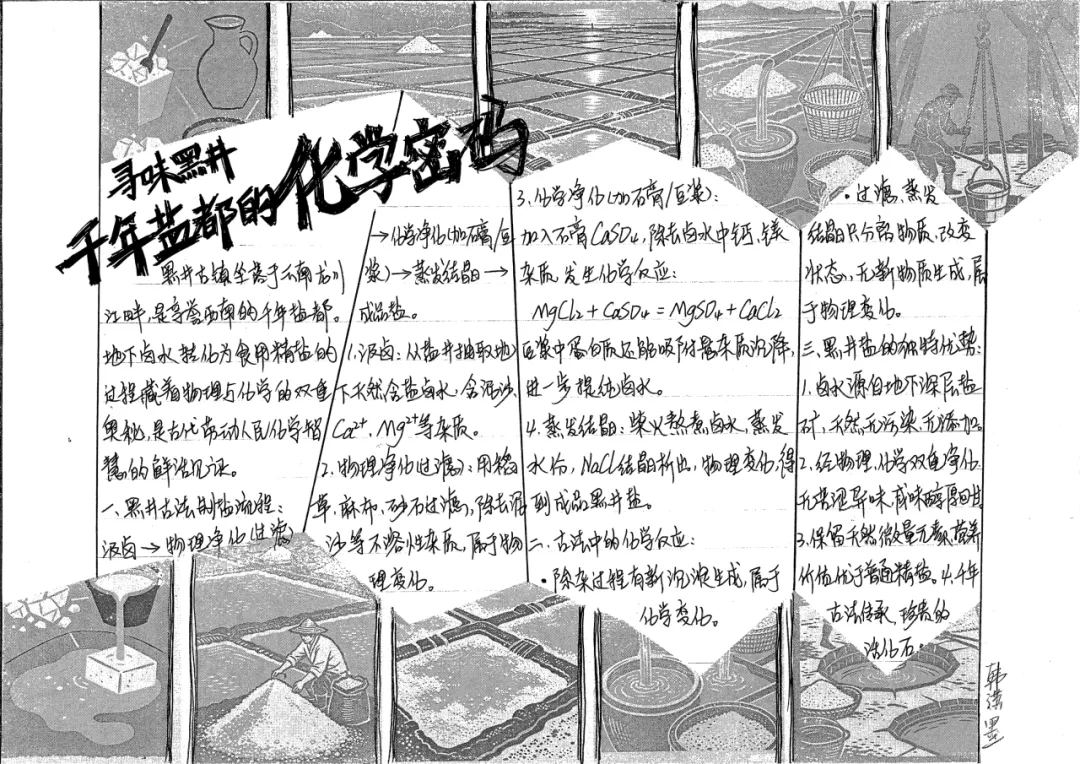 寻味黑井
千年盐都的化学密码
黑井古镇坐落于云南龙川
江畔,是享誉西南的千年盐都。
地下卤水转化为食用精盐的
过程藏着物理与化学的双重
奥秘,是古代劳动人民化学智
慧的鲜活见证。
一、黑井古法制盐流程:
汲卤→物理净化(过滤)
→化学净化(加石膏/豆
浆)→蒸发结晶→
成品盐。
1.汲卤:从盐井抽取地
下天然含盐卤水,含泥沙、
Ca²⁺、Mg²⁺等杂质。
2.物理净化(过滤):用稻
草、麻布、砂石过滤,除去泥
沙等不溶性杂质,属于物
理变化。
3.化学净化(加石膏/豆浆):
加入石膏CaSO₄,除去卤水中钙、镁
杂质,发生化学反应:
MgCl₂+CaSO₄=MgSO₄+CaCl₂
豆浆中蛋白质还能吸附悬杂质沉降,
进一步提纯卤水。
4.蒸发结晶:柴火熬煮卤水,蒸发
水分,NaCl结晶析出,物理变化,得
到成品黑井盐。
二、古法中的化学反应:
·除杂过程有新沉淀生成,属于
化学变化。
·过滤、蒸发
结晶只分离物质,改变
状态,无新物质生成,属
于物理变化。
三、黑井盐的独特优势:
1.卤水源自地下深层盐
矿,天然无污染,无添加。
2.经物理、化学双重净化
无苦涩异味,咸味醇厚回甘
3.保留天然微量元素,营养
价值优于普通精盐。4.千年
古法传承,珍贵的
活化石。
韩墨